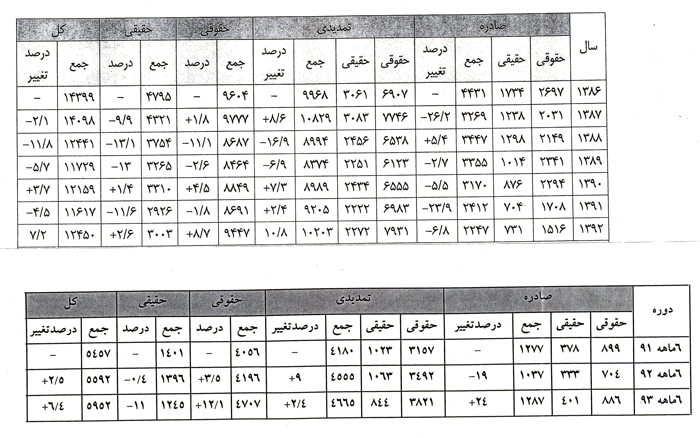 سال صادره تمدیدی حقوقی حقیقی کل
حقوقی حقیقی جمع درصد تغییر حقوقی حقیقی جمع درصد تغییر جمع درصد جمع درصد جمع درصد تغییر
۱۳۸۶ ۲۶۹۷ ۱۷۳۴ ۴۴۳۱ – ۶۹۰۷ ۳۰۶۱ ۹۹۶۸ – ۹۶۰۴ – ۴۷۹۵ – ۱۴۳۹۹ –
۱۳۸۷ ۲۰۳۱ ۱۲۳۸ ۳۲۶۹ -۲۶/۲ ۷۷۴۶ ۳۰۸۳ ۱۰۸۲۹ +۸/۶ ۹۷۷۷ +۱/۸ ۴۳۲۱ -۹/۹ ۱۴۰۹۸ -۲/۱
۱۳۸۸ ۲۱۴۹ ۱۲۹۸ ۳۴۴۷ +۵/۴ ۶۵۳۸ ۲۴۵۶ ۸۹۹۴ -۱۶/۹ ۸۶۸۷ -۱۱/۱ ۳۷۵۴ -۱۳/۱ ۱۲۴۴۱ -۱۱/۸
۱۳۸۹ ۲۳۴۱ ۱۰۱۴ ۳۳۵۵ -۲/۷ ۶۱۲۳ ۲۲۵۱ ۸۳۷۴ -۶/۹ ۸۴۶۴ -۲/۶ ۳۲۶۵ -۱۳ ۱۱۷۲۹ -۵/۷
۱۳۹۰ ۲۲۹۴ ۸۷۶ ۳۱۷۰ -۵/۵ ۶۵۵۵ ۲۴۳۴ ۸۹۸۹ +۷/۳ ۸۸۴۹ +۴/۵ ۳۳۱۰ +۱/۴ ۱۲۱۵۹ +۳/۷
۱۳۹۱ ۱۷۰۸ ۷۰۴ ۲۴۱۲ -۲۳/۹ ۶۹۸۳ ۲۲۲۲ ۹۲۰۵ +۲/۴ ۸۶۹۱ -۱/۸ ۲۹۲۶ -۱۱/۶ ۱۱۶۱۷ -۴/۵
۱۳۹۲ ۱۵۱۶ ۷۳۱ ۲۲۴۷ -۶/۸ ۷۹۳۱ ۲۲۷۲ ۱۰۲۰۳ ۱۰/۸ ۹۴۴۷ +۸/۷ ۳۰۰۳ +۲/۶ ۱۲۴۵۰ ۷/۲
دوره صادره تمدیدی حقوقی حقیقی کل
حقوقی حقیقی جمع درصدتغییر حقوقی حقیقی جمع درصدتغییر جمع درصد جمع درصد جمع درصدتغییر
۶ماهه ۹۱ ۸۹۹ ۳۷۸ ۱۲۷۷ – ۳۱۵۷ ۱۰۲۳ ۴۱۸۰ – ۴۰۵۶ – ۱۴۰۱ – ۵۴۵۷ –
۶ماهه ۹۲ ۷۰۴ ۳۳۳ ۱۰۳۷ -۱۹ ۳۴۹۲ ۱۰۶۳ ۴۵۵۵ +۹ ۴۱۹۶ +۳/۵ ۱۳۹۶ -۰/۴ ۵۵۹۲ +۲/۵
۶ماهه ۹۳ ۸۸۶ ۴۰۱ ۱۲۸۷ +۲۴ ۳۸۲۱ ۸۴۴ ۴۶۶۵ +۲/۴ ۴۷۰۷ +۱۲/۱ ۱۲۴۵ -۱۱ ۵۹۵۲ +۶/۴